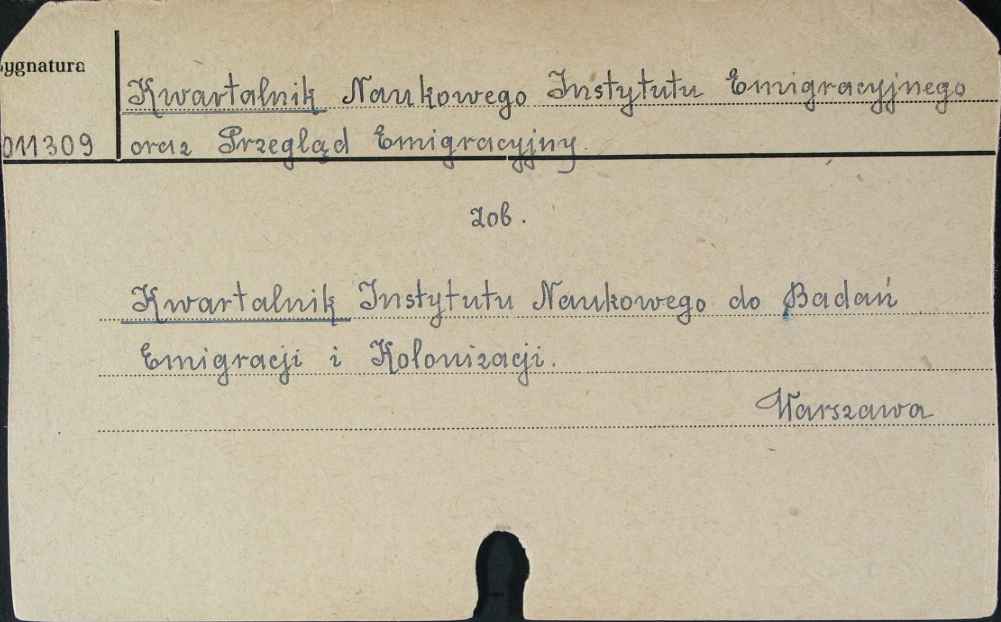 ygnatura
Kwartalnik Naukowego Instytutu Emigracyjnego
011309 oraz Przegląd Emigracyjny.
zob.
Kwartalnik Instytutu Naukowego do Badań
Emigracji i Kolonizacji.
Warszawa